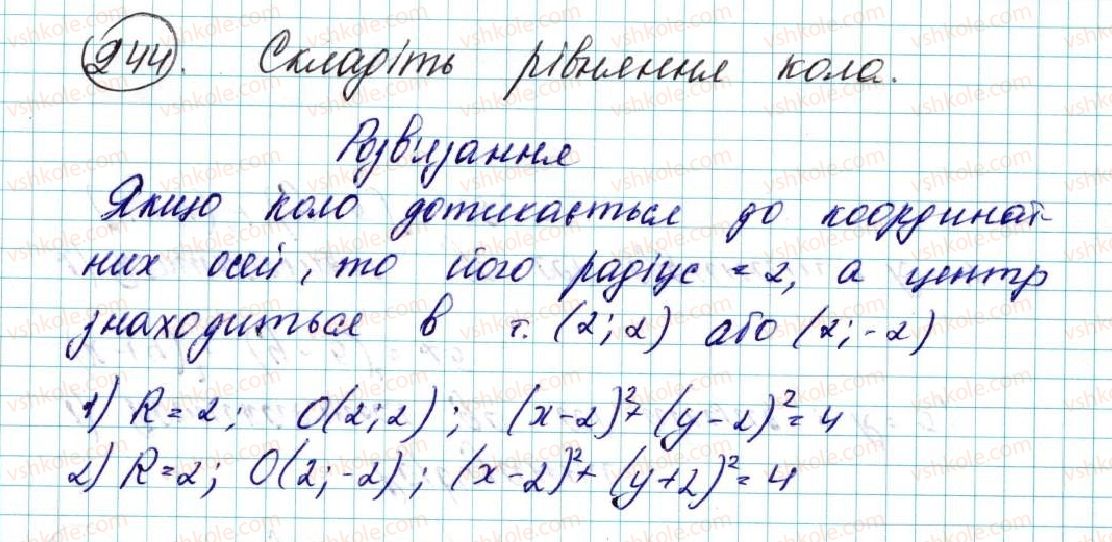 244. Складіть рівняння кола.
Розв'язання
Якщо коло дотикається до координат-
них осей, то його радіус = 2, а центр
знаходиться в т. (2; 2) або (2; -2)
1) R = 2; O(2; 2); (x-2)²+(y-2)²=4
2) R=2; O(2; -2); (x-2)²+(y+2)²=4